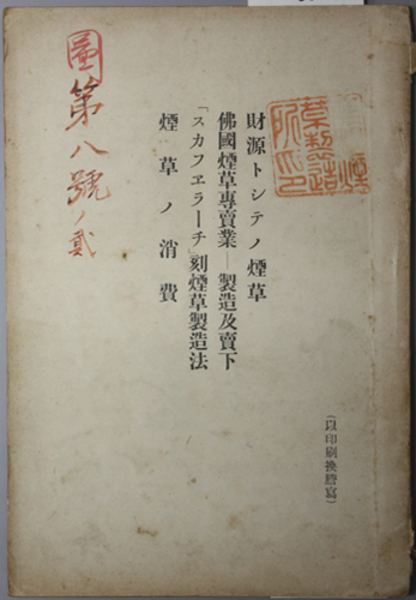 財源トシテノ煙草
佛國煙草專賣業―製造及賣下
「スカフエラーチ」刻煙草製造法
煙草ノ消費
(以印刷換謄寫)
圖
第八號ノ貳
煙
草製造
所印